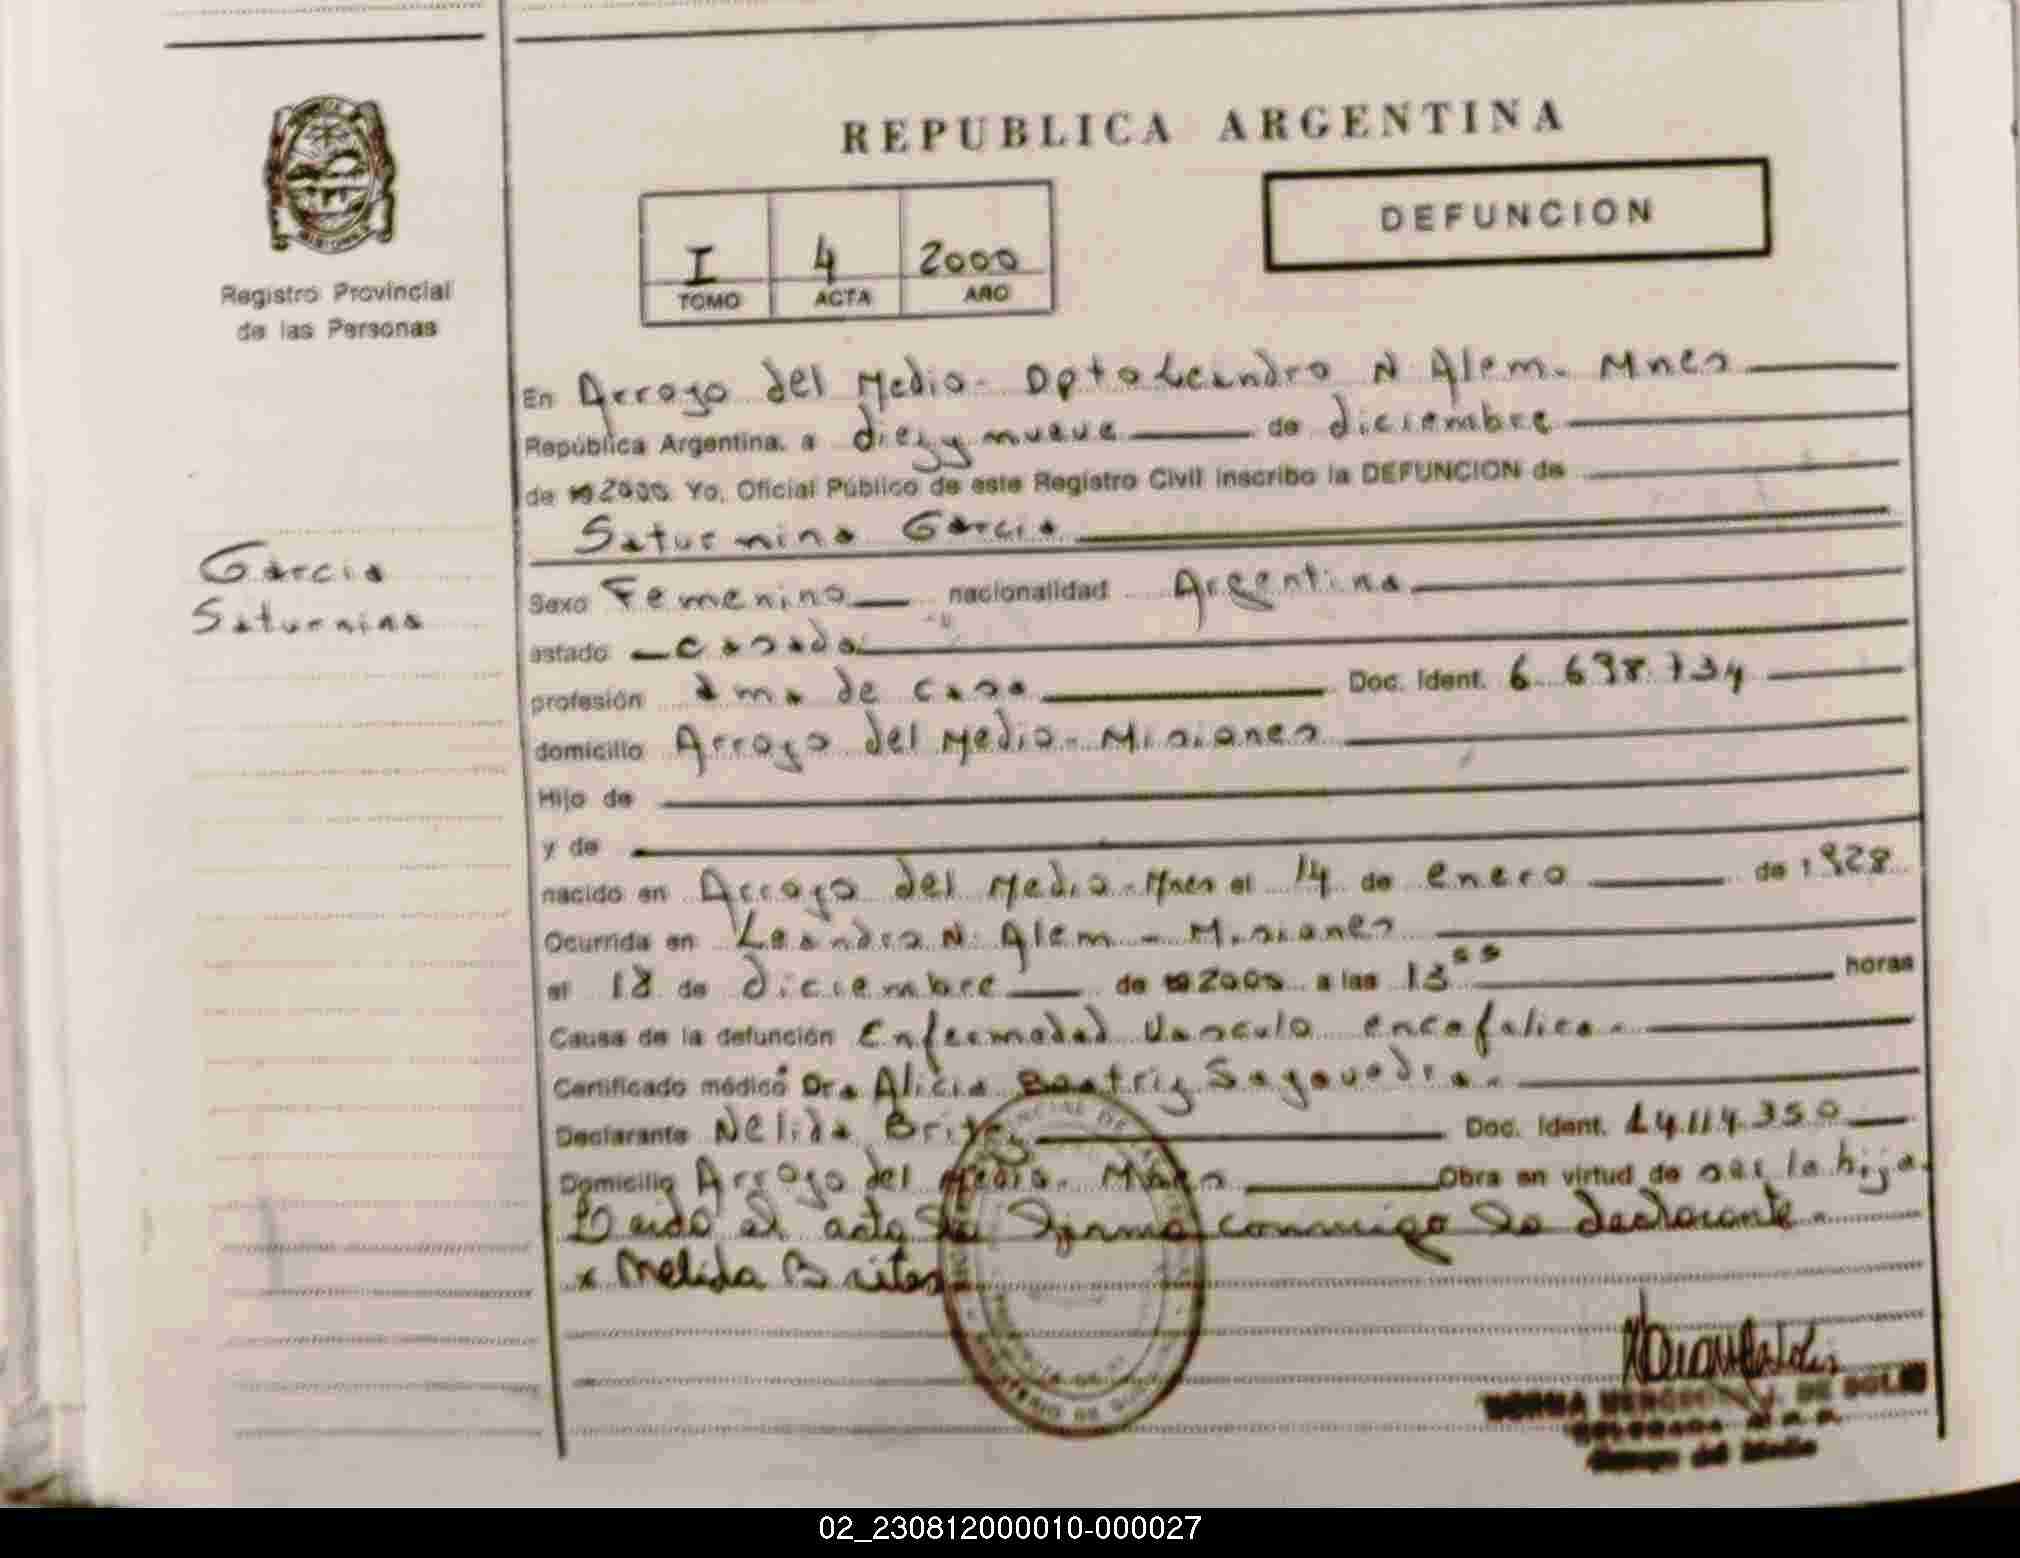 REPUBLICA ARGENTINA
DEFUNCION
I 4 2000
TOMO ACTA AÑO
Registro Provincial
de las Personas
En Arroyo del Medio - Dpto Leandro N Alem - Mnes
República Argentina, a diez y nueve de diciembre
de 19 2000 Yo, Oficial Público de este Registro Civil inscribo la DEFUNCION de
Saturnina Garcia
Garcia
Saturnina
Sexo Femenino nacionalidad Argentina
estado casada
profesión ama de casa Doc. Ident. 6.638.734
domicilio Arroyo del Medio - Misiones
Hijo de
y de
nacido en Arroyo del Medio - Mnes el 14 de enero de 1928
Ocurrida en Leandro N. Alem - Misiones
el 18 de diciembre de 19 2000 a las 13 horas
Causa de la defunción Enfermedad Vasculo encefalica.
Certificado médico Dra Alicia Beatriz
Declarante Nelida Britez Doc. Ident. 14.114.350
Domicilio Arroyo del Medio - Mnes Obra en virtud de ser la hija.
Leido el acta la firma conmigo la declarante
x Nelida Brites
DE
Arroyo del Medio
02_230812000010-000027